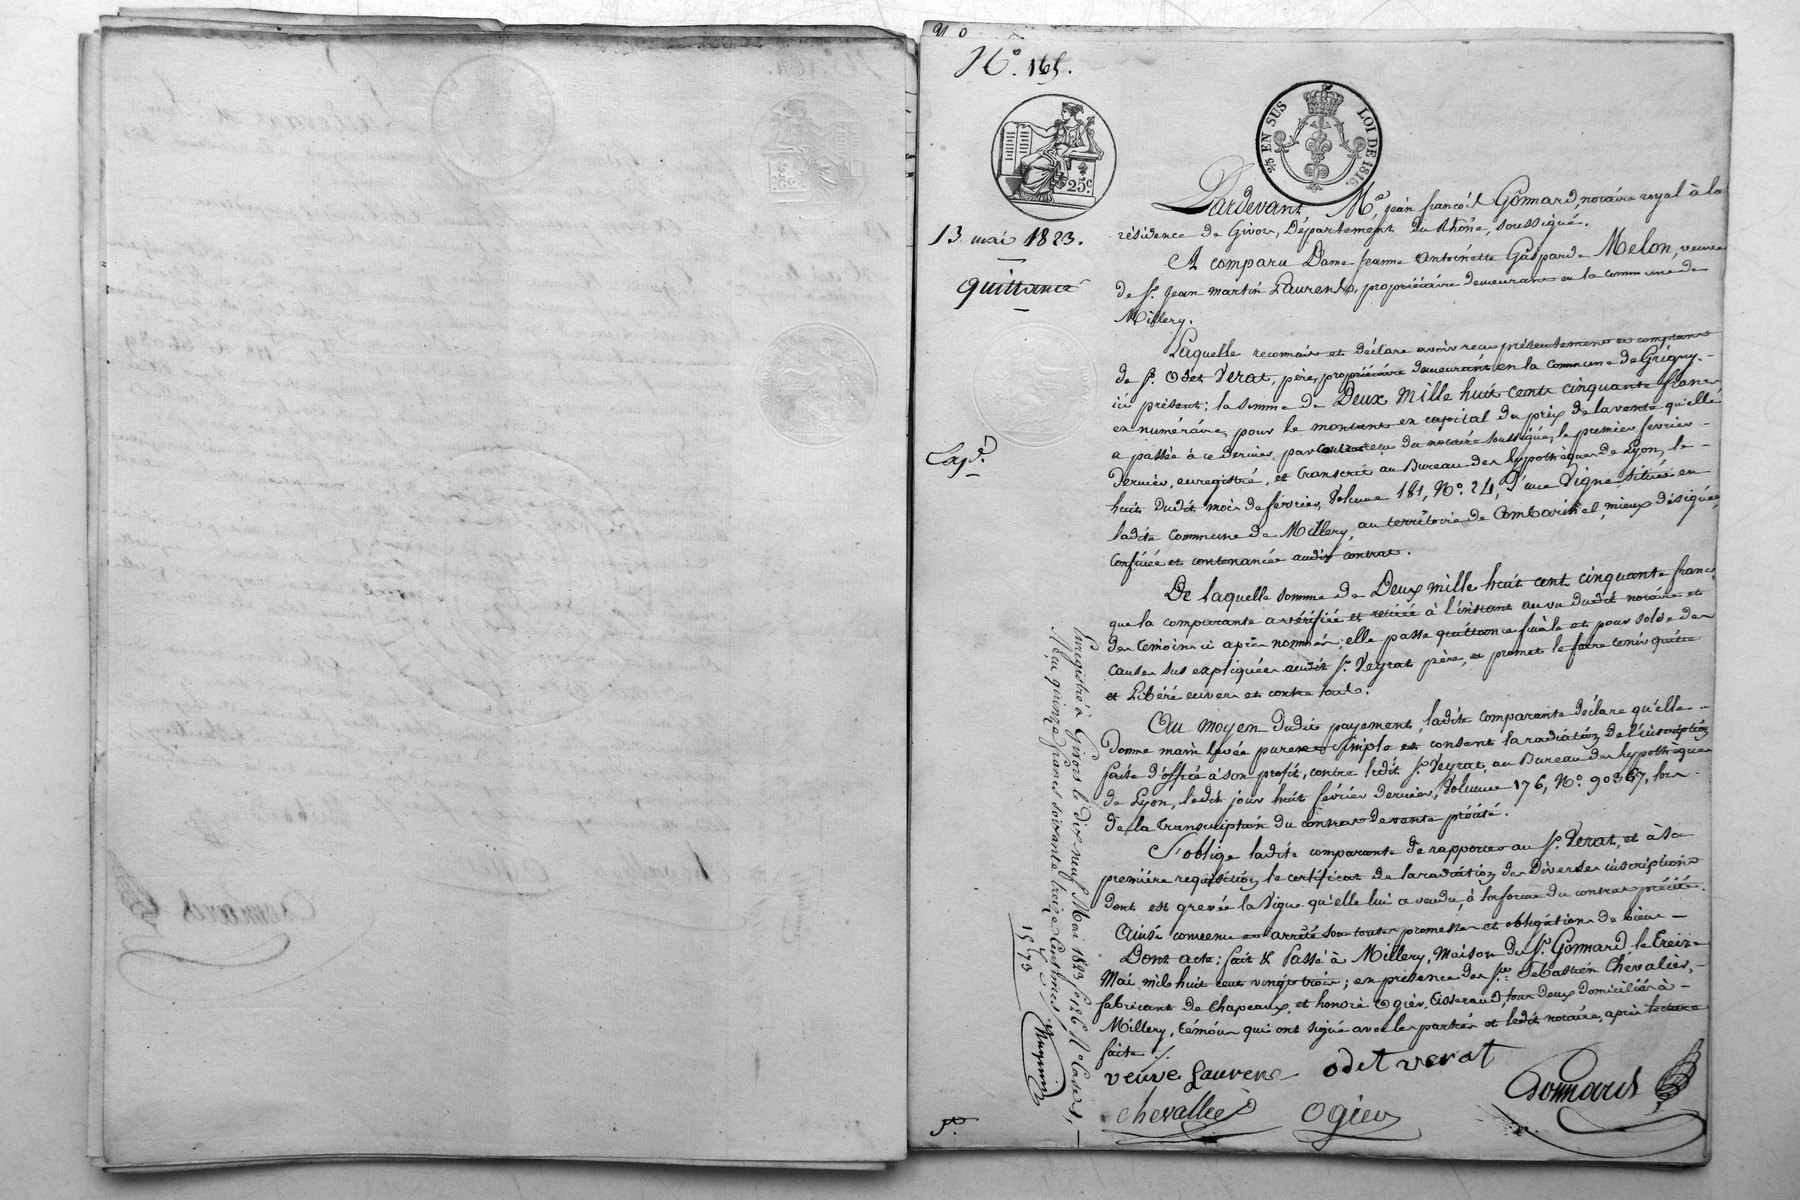 N.° 165.
25c.
2/5 EN SUS LOI DE 1816.
13 mai 1823.
quittance
Exp.é
Pardevant, M.e jean françois Gonnard, notaire royal à la
résidence de Givors, Département du Rhône, soussigné.
A comparu Dame jeanne Antoinette Gasparde Melon, veuve
de S.r jean martin Laurens, propriétaire demeurant en la commune de
Millery.
Laquelle reconnait et déclare avoir reçu présentement et comptant
de S.r Odet Verat, père, propriétaire demeurant en la Commune de Grigny.-
ici présent; la somme de Deux Mille huit cents cinquante francs
en numéraire, pour le montant en capital du prix de la vente qu'elle
a passée à ce dernier, par contrat reçu du notaire soussigné, le premier février -
dernier, enregistré, et transcrit au Bureau des hypothèques de Lyon, le -
huit dudit mois de février, Volume 181, N.° 24, d'une Vigne située en
ladite Commune de Millery, au territoire de Combarinel, mieux désignée,
Confinée et contenancée audit contrat.
De laquelle somme de Deux mille huit cent cinquante francs,
que la comparante a vérifiée et retirée à l'instant au vu dudit notaire et
des témoins ci après nommés; elle passe quittance finale et pour solde des
causes sus expliquées audit S.r Veyrat père, et promet le faire tenir quitte
et Libéré envers et contre tous.
Au moyen dudit payement, ladite comparante déclare qu'elle -
donne main levée pure et simple et consent la radiation de l'inscription
faite d'office à son profit, contre ledit S.r Veyrat, au Bureau des hypothèques
de Lyon, ledit jour huit février dernier, Volume 176, N.° 90367, lors -
de la transcription du contrat de vente précité.
S'oblige ladite comparante de rapporter au S.r Verat, et à sa
première requisition le certificat de la radiation des diverses inscriptions
dont est grevée la Vigne qu'elle lui a vendu, à la forme du contrat précité.
Ainsi convenu et arrêté sous toutes promesses et obligations de biens -
Dont acte; fait & Passé à Millery, Maison du S.r Gonnard, le treize
Mai mil huit cent vingt trois; en présence des S.rs Sébastien Chevalier, -
fabricant de Chapeaux, et honoré Ogier, tisserand, tous deux domiciliés à -
Millery, témoins qui ont signé avec les parties et ledit notaire, après lecture
faite ./.
veuve Laurens odet verat
Gonnard
chevallier Ogier
Enregistré à Givors le dix neuf Mai 1823 f.
Reçu quinze francs soixante treize Centimes
15 73